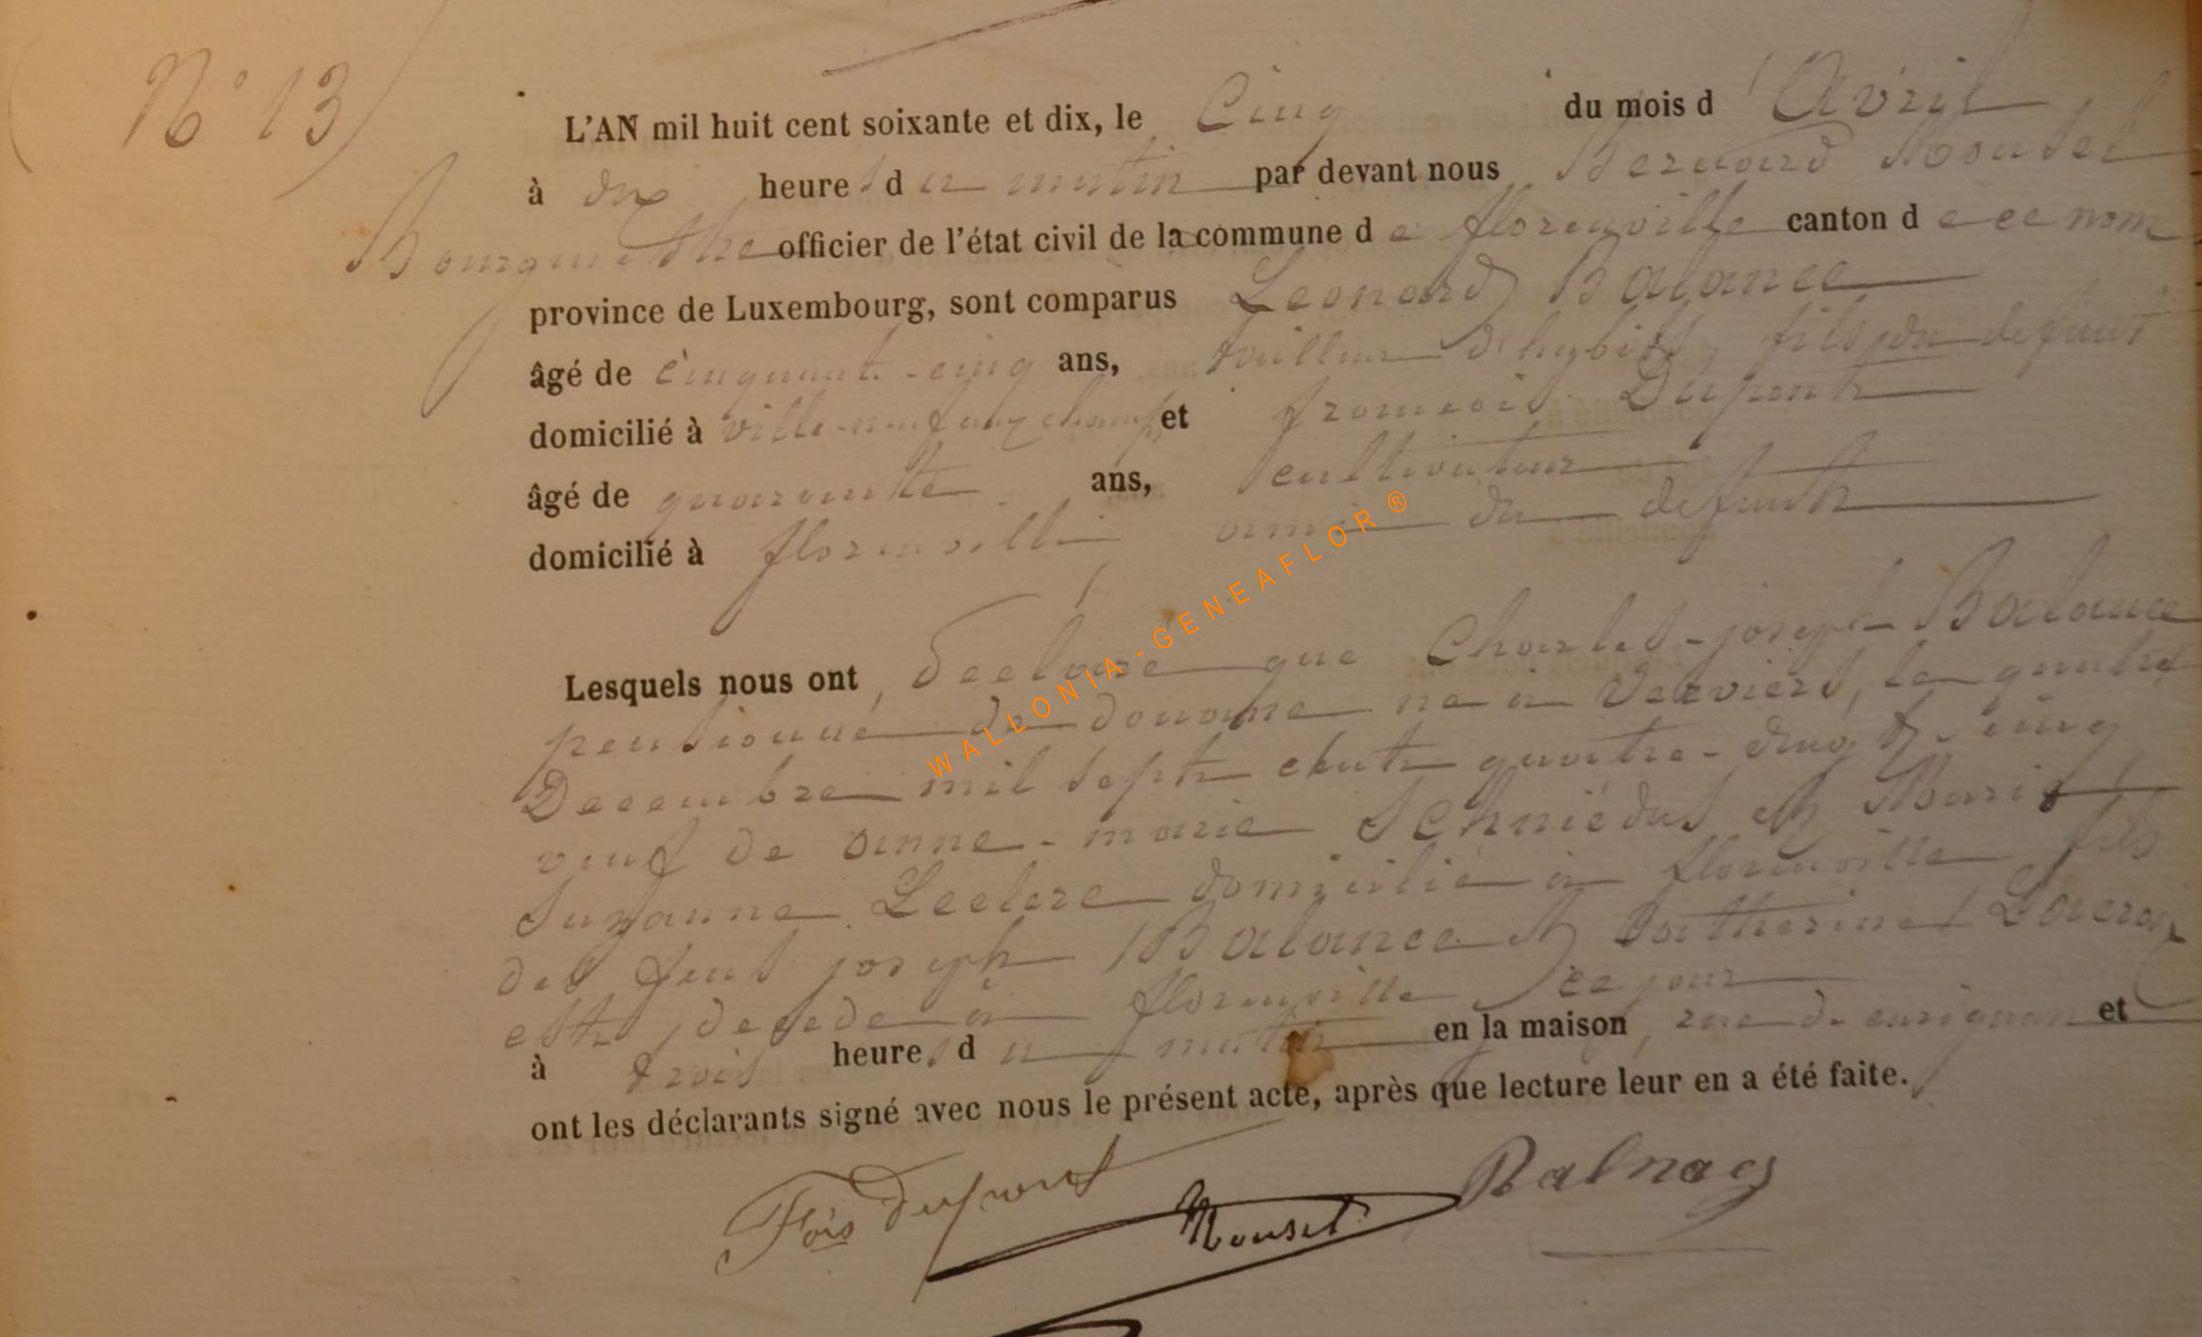 N° 13
L'AN mil huit cent soixante et dix, le Cinq du mois d'Avril
à dix heures du matin par devant nous Bernard Mousel
Bourgmestre officier de l'état civil de la commune de florenville canton de ce nom
province de Luxembourg, sont comparus Leonard Balance
âgé de cinquante-cinq ans, tailleur d'habits, fils du defunt
domicilié à ville-neuf aux champs, et francois Dupont
âgé de quarante ans, cultivateur
domicilié à florenville ami du defunt
Lesquels nous ont déclaré que Charles-joseph Balance
pensionné de douane né à Verviers, le quatre
Decembre mil sept cent quatre-vingt-cinq
veuf de anne-marie et Marie
Suzanne Leclere domicilié à florenville fils
des feus joseph Balance et Catherine
est décédé à florenville ce jour
à trois heures du matin en la maison, rue de carignan et
ont les déclarants signé avec nous le présent acte, après que lecture leur en a été faite.
Fois Dupont
Mousel
WALLONIA-GENEAFLOR®